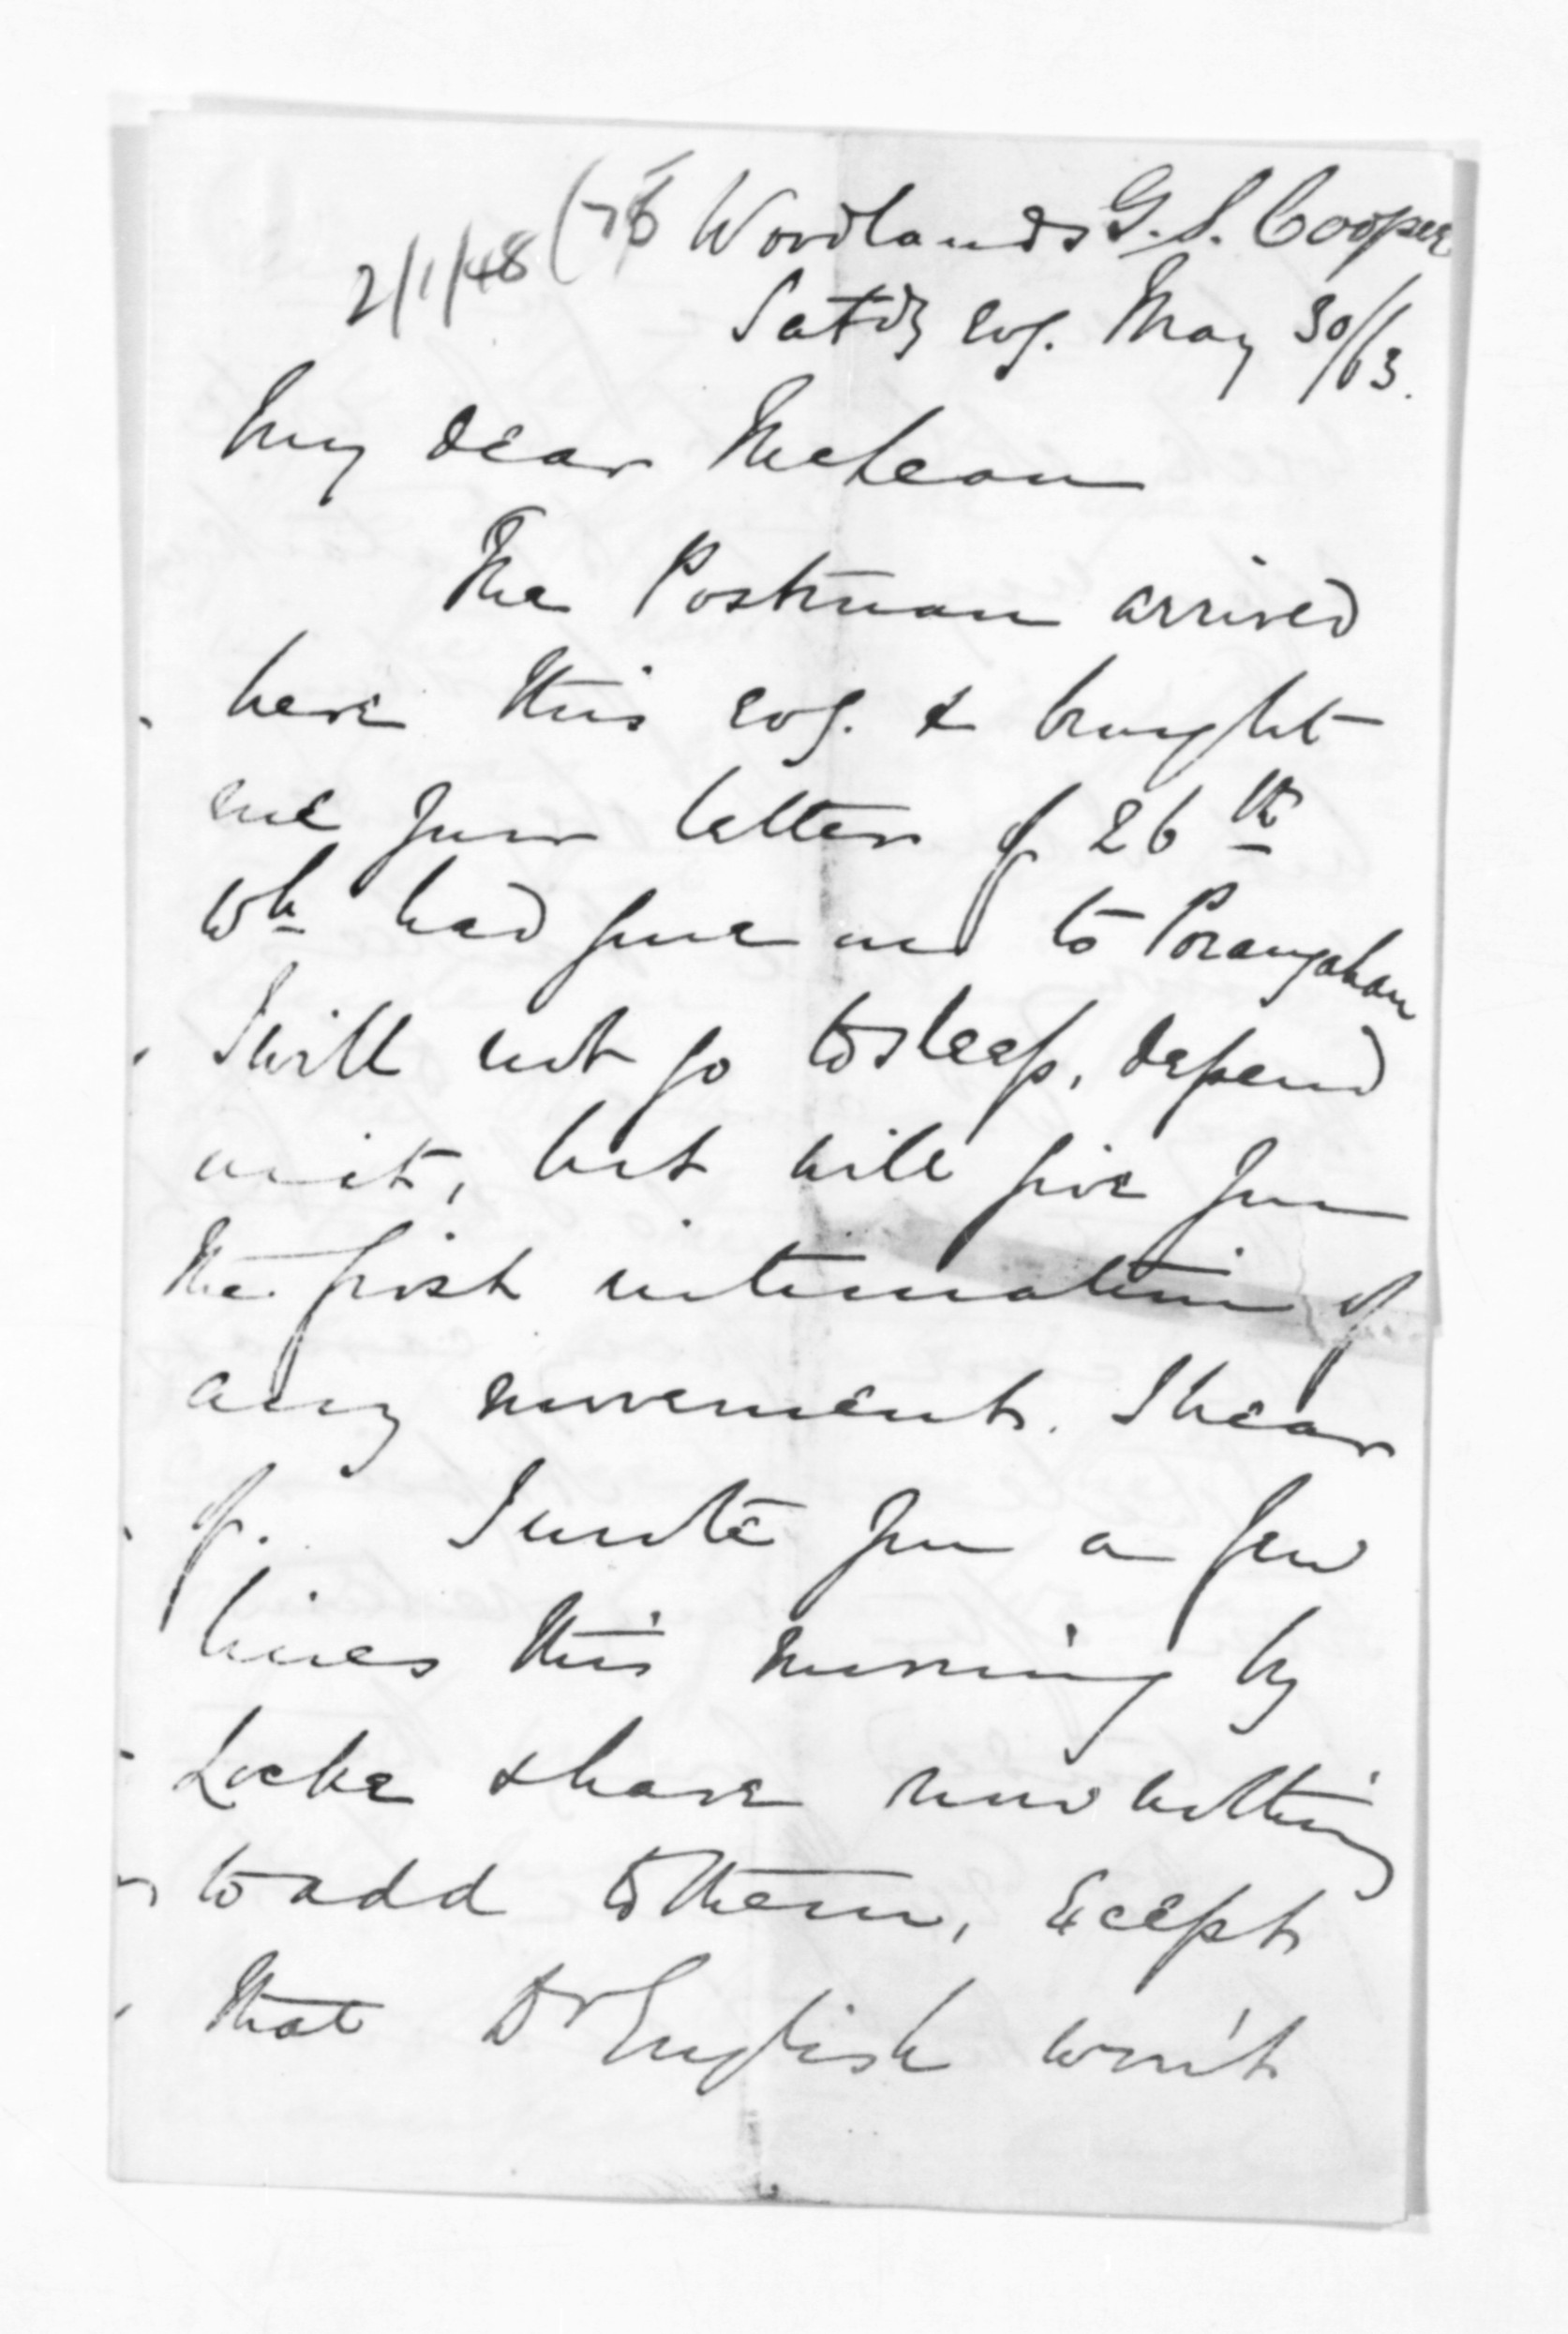 2/1/48 Woodlands G. S. Cooper
Satdy evg. May 30/63.
My dear McLean
The Postman arrived
here this evg. & brought
me your letter of 26th
wh had gone on to Porangahau
I will not go to sleep, depend
on it, but will give you
the first intimation of
any movements I hear
of. I wrote you a few
lines this morning by
Locke & have now nothing
to add to them, except
that Dr English won't